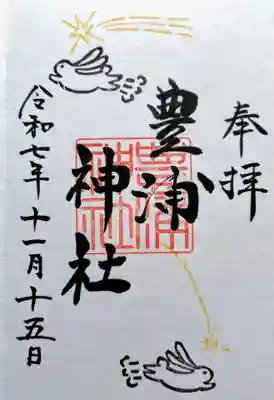 奉拝
豊浦
神社
令和七年十一月十五日